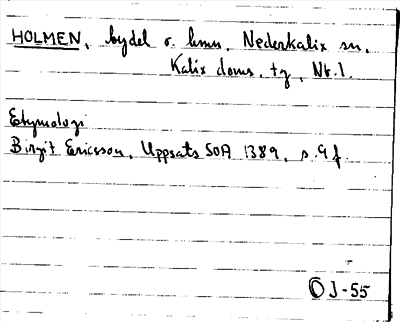 HOLMEN, bydel o. hmn. Nederkalix sn,
Kalix doms. tg, Nb. l.
Etymologi
Birgit Ericsson, Uppsats SOA 1389, s. 9 f.
OJ-55